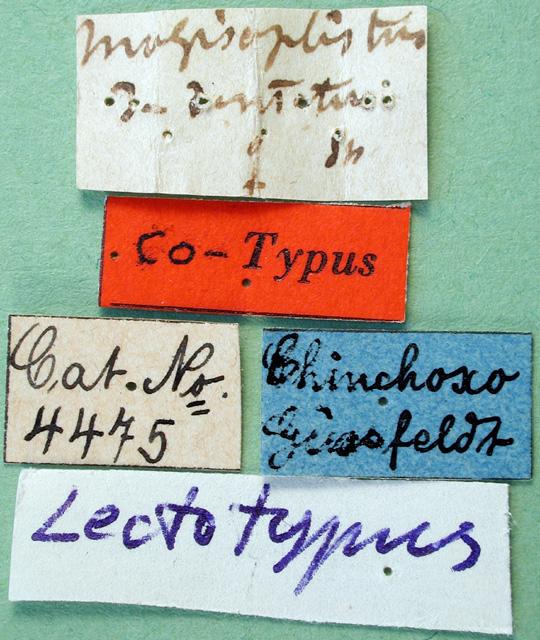 Mogisoplistus
♀ Sn
Co-Typus
Cat. No.
4475
Chinchoxo
Güssfeldt
Lectotypus